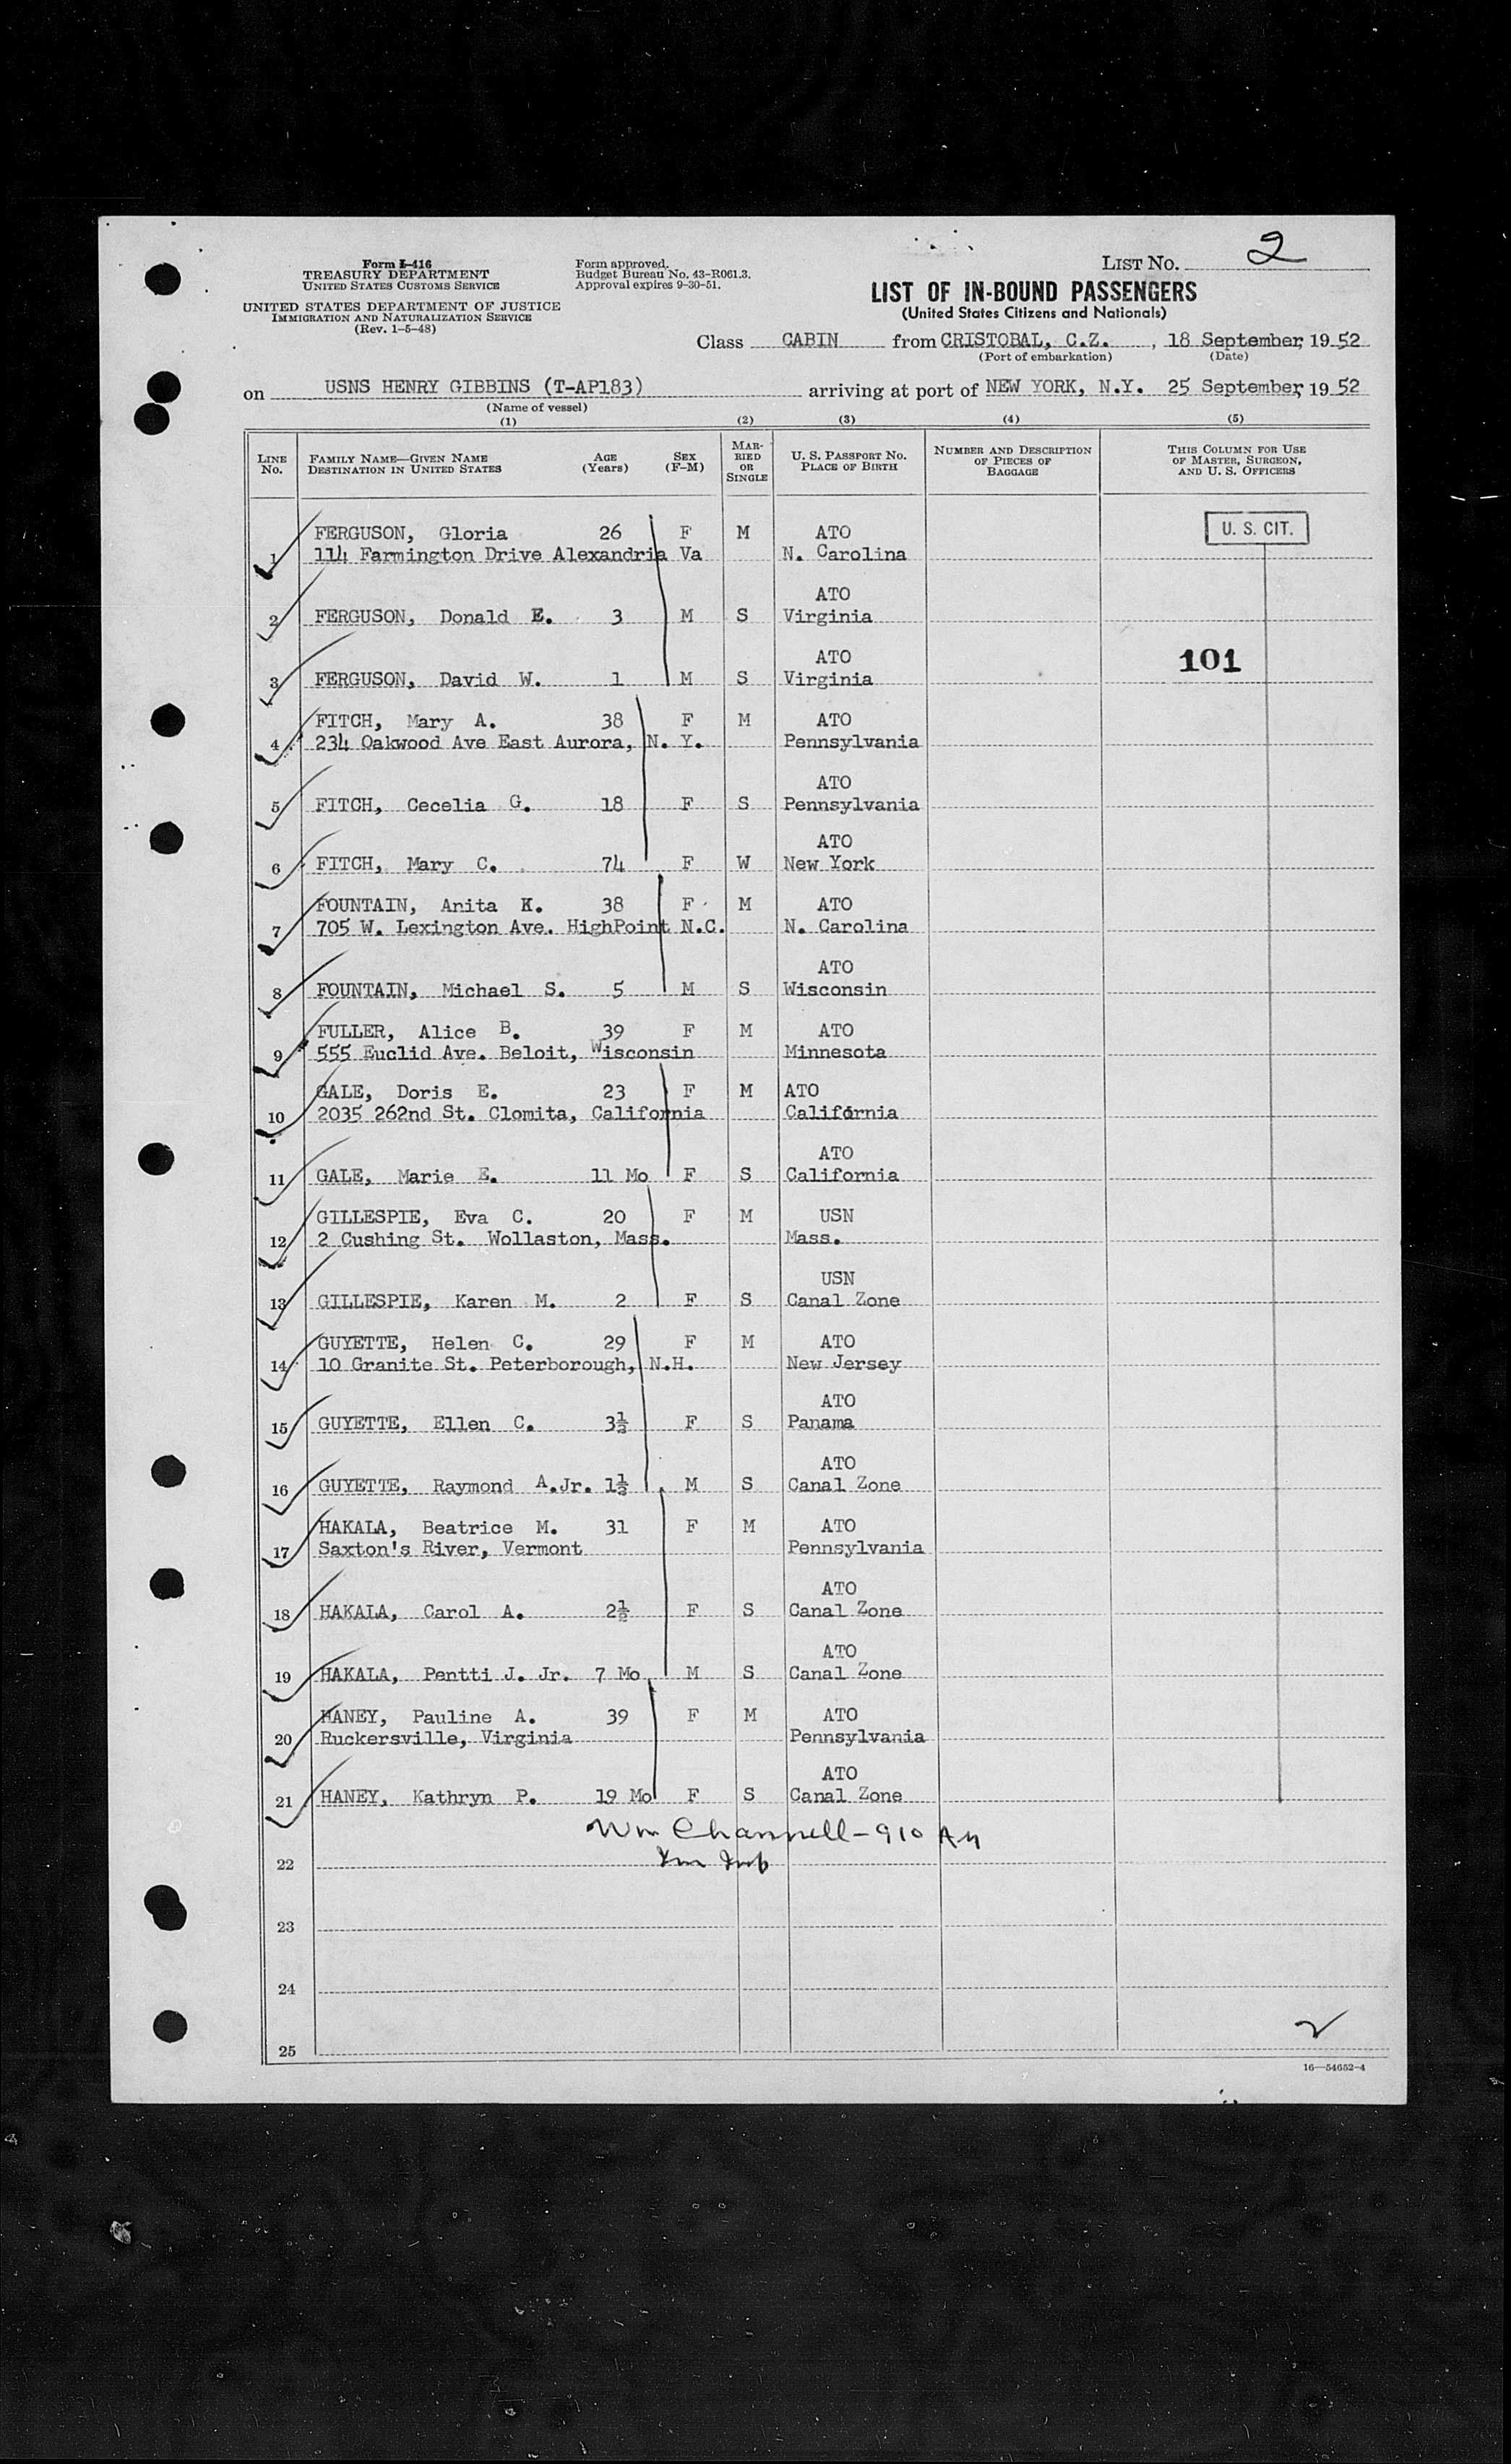 Form I-416
TREASURY DEPARTMENT
UNITED STATES CUSTOMS SERVICE
UNITED STATES DEPARTMENT OF JUSTICE
IMMIGRATION AND NATURALIZATION SERVICE
(Rev. 1-5-48)
Form approved.
Budget Bureau No. 43-R061.3.
Approval expires 9-30-51.
LIST No. 2
LIST OF IN-BOUND PASSENGERS
(United States Citizens and Nationals)
Class CABIN from CRISTOBAL, C.Z. , 18 September, 19 52
(Port of embarkation) (Date)
on USNS HENRY GIBBINS (T-AP183) arriving at port of NEW YORK, N.Y. 25 September, 19 52
(Name of vessel)
(1) (2) (3) (4) (5)
LINE No. FAMILY NAME—GIVEN NAME DESTINATION IN UNITED STATES AGE (Years) SEX (F-M) MARRIED OR SINGLE U. S. PASSPORT No. PLACE OF BIRTH NUMBER AND DESCRIPTION OF PIECES OF BAGGAGE THIS COLUMN FOR USE OF MASTER, SURGEON, AND U. S. OFFICERS
FERGUSON, Gloria 26 F M ATO U. S. CIT.
1 114 Farmington Drive Alexandria Va N. Carolina
ATO
2 FERGUSON, Donald E. 3 M S Virginia
ATO 101
3 FERGUSON, David W. 1 M S Virginia
FITCH, Mary A. 38 F M ATO
4 234 Oakwood Ave East Aurora, N. Y. Pennsylvania
ATO
5 FITCH, Cecelia G. 18 F S Pennsylvania
ATO
6 FITCH, Mary C. 74 F W New York
FOUNTAIN, Anita K. 38 F M ATO
7 705 W. Lexington Ave. HighPoint N.C. N. Carolina
ATO
8 FOUNTAIN, Michael S. 5 M S Wisconsin
FULLER, Alice B. 39 F M ATO
9 555 Euclid Ave. Beloit, Wisconsin Minnesota
GALE, Doris E. 23 F M ATO
10 2035 262nd St. Clomita, California California
ATO
11 GALE, Marie E. 11 Mo F S California
GILLESPIE, Eva C. 20 F M USN
12 2 Cushing St. Wollaston, Mass. Mass.
USN
13 GILLESPIE, Karen M. 2 F S Canal Zone
GUYETTE, Helen C. 29 F M ATO
14 10 Granite St. Peterborough, N.H. New Jersey
ATO
15 GUYETTE, Ellen C. 3½ F S Panama
ATO
16 GUYETTE, Raymond A.Jr. 1½ M S Canal Zone
HAKALA, Beatrice M. 31 F M ATO
17 Saxton's River, Vermont Pennsylvania
ATO
18 HAKALA, Carol A. 2½ F S Canal Zone
ATO
19 HAKALA, Pentti J. Jr. 7 Mo M S Canal Zone
HANEY, Pauline A. 39 F M ATO
20 Ruckersville, Virginia Pennsylvania
ATO
21 HANEY, Kathryn P. 19 Mo F S Canal Zone
Wm Channell - 910 AM
22
23
24
25
16—54652-4